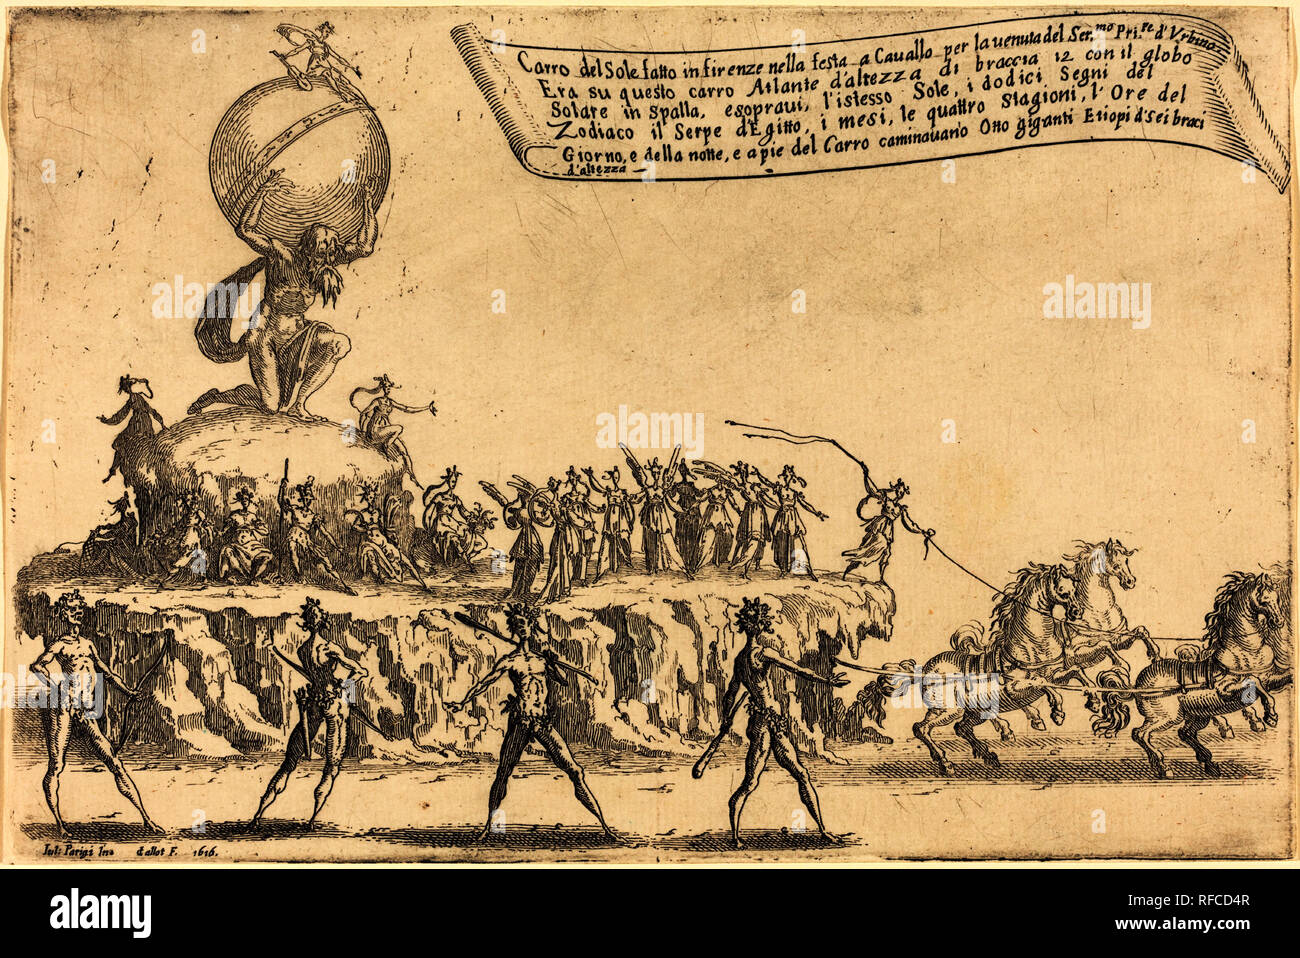 Carro del Sole fatto in firenze nella festa a Cauallo per la uenuta del Ser.mo Pri.pe d'Vrbino
Era su questo carro Atlante d'altezza di braccia 12 con il globo
Solare in spalla, e sopra ui, l'istesso Sole, i dodici Segni del
Zodiaco il Serpe d'Egitto, i mesi, le quattro stagioni, l'Ore del
Giorno, e della notte, e a pie del Carro caminauano Otto giganti Etiopi d'sei braci
d'altezza
Iul: Parigi Inu Callot F. 1616.
alamy
alamy
alamy
Image ID: RFCD4R
www.alamy.com